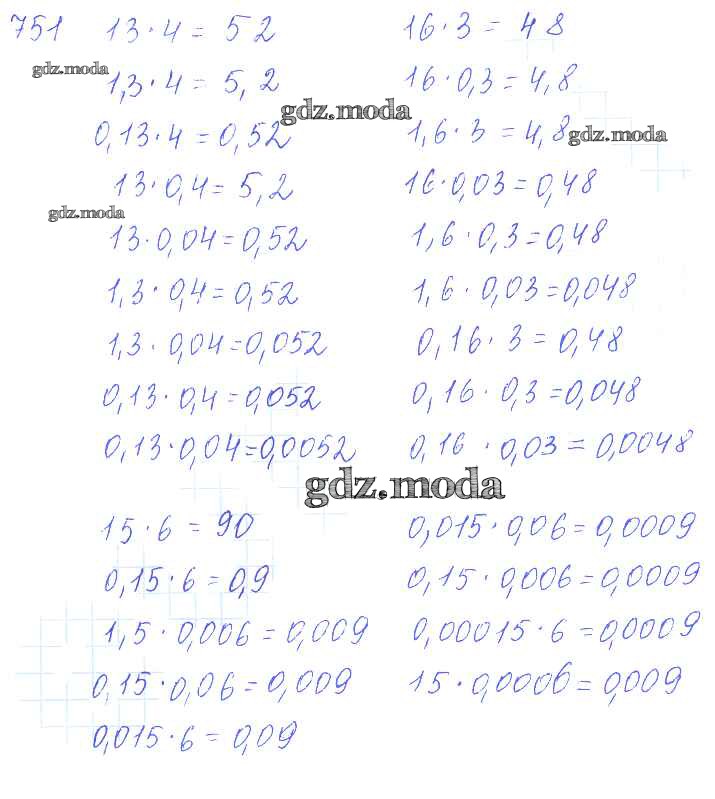 751 13·4 = 52 16·3 = 48
gdz.moda
1,3·4 = 5,2 16·0,3 = 4,8
gdz.moda
0,13·4 = 0,52 1,6·3 = 4,8
gdz.moda
13·0,4 = 5,2 16·0,03 = 0,48
gdz.moda
13·0,04 = 0,52 1,6·0,3 = 0,48
1,3·0,4 = 0,52 1,6·0,03 = 0,048
1,3·0,04 = 0,052 0,16·3 = 0,48
0,13·0,4 = 0,052 0,16·0,3 = 0,048
0,13·0,04 = 0,0052 0,16·0,03 = 0,0048
gdz.moda
15·6 = 90 0,015·0,06 = 0,0009
0,15·6 = 0,9 0,15·0,006 = 0,0009
1,5·0,006 = 0,009 0,00015·6 = 0,0009
0,15·0,06 = 0,009 15·0,0006 = 0,009
0,015·6 = 0,09